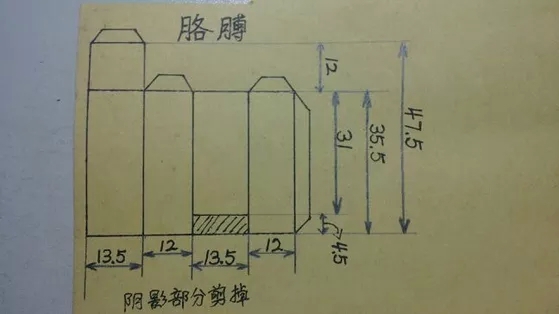 胳膊
12
47.5
35.5
31
4.5
13.5 12 13.5 12
阴影部分剪掉